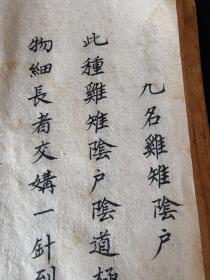 九名雞雉陰户
此種雞雉陰户陰道極
物細長者交媾一針到